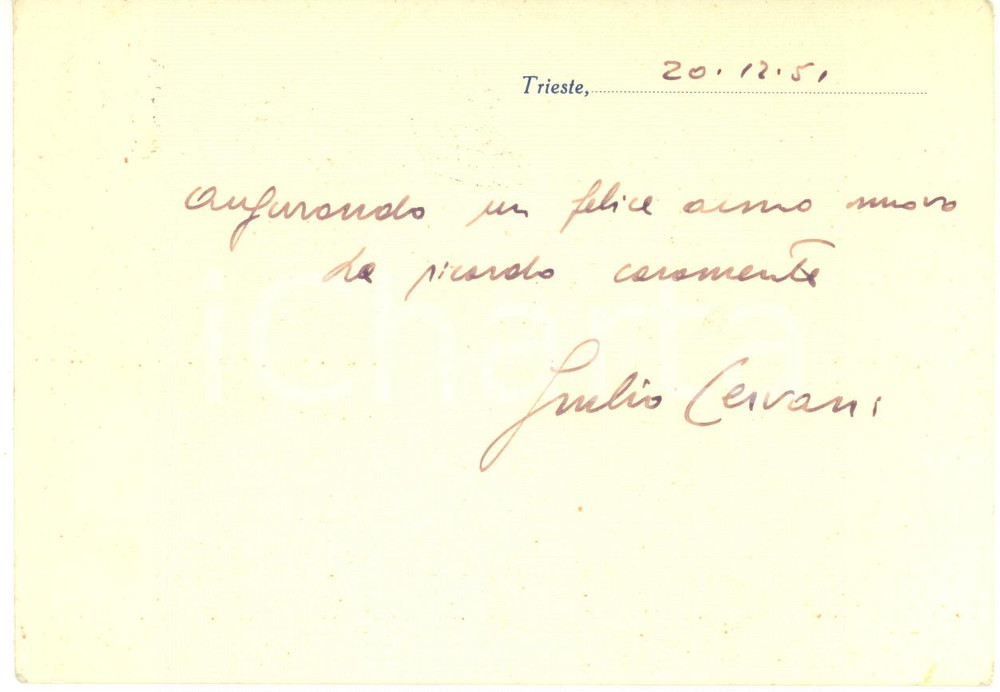 Trieste, 20.12.51
Augurando un felice anno nuovo
La ricordo caramente
Giulio Cervani
iCharta